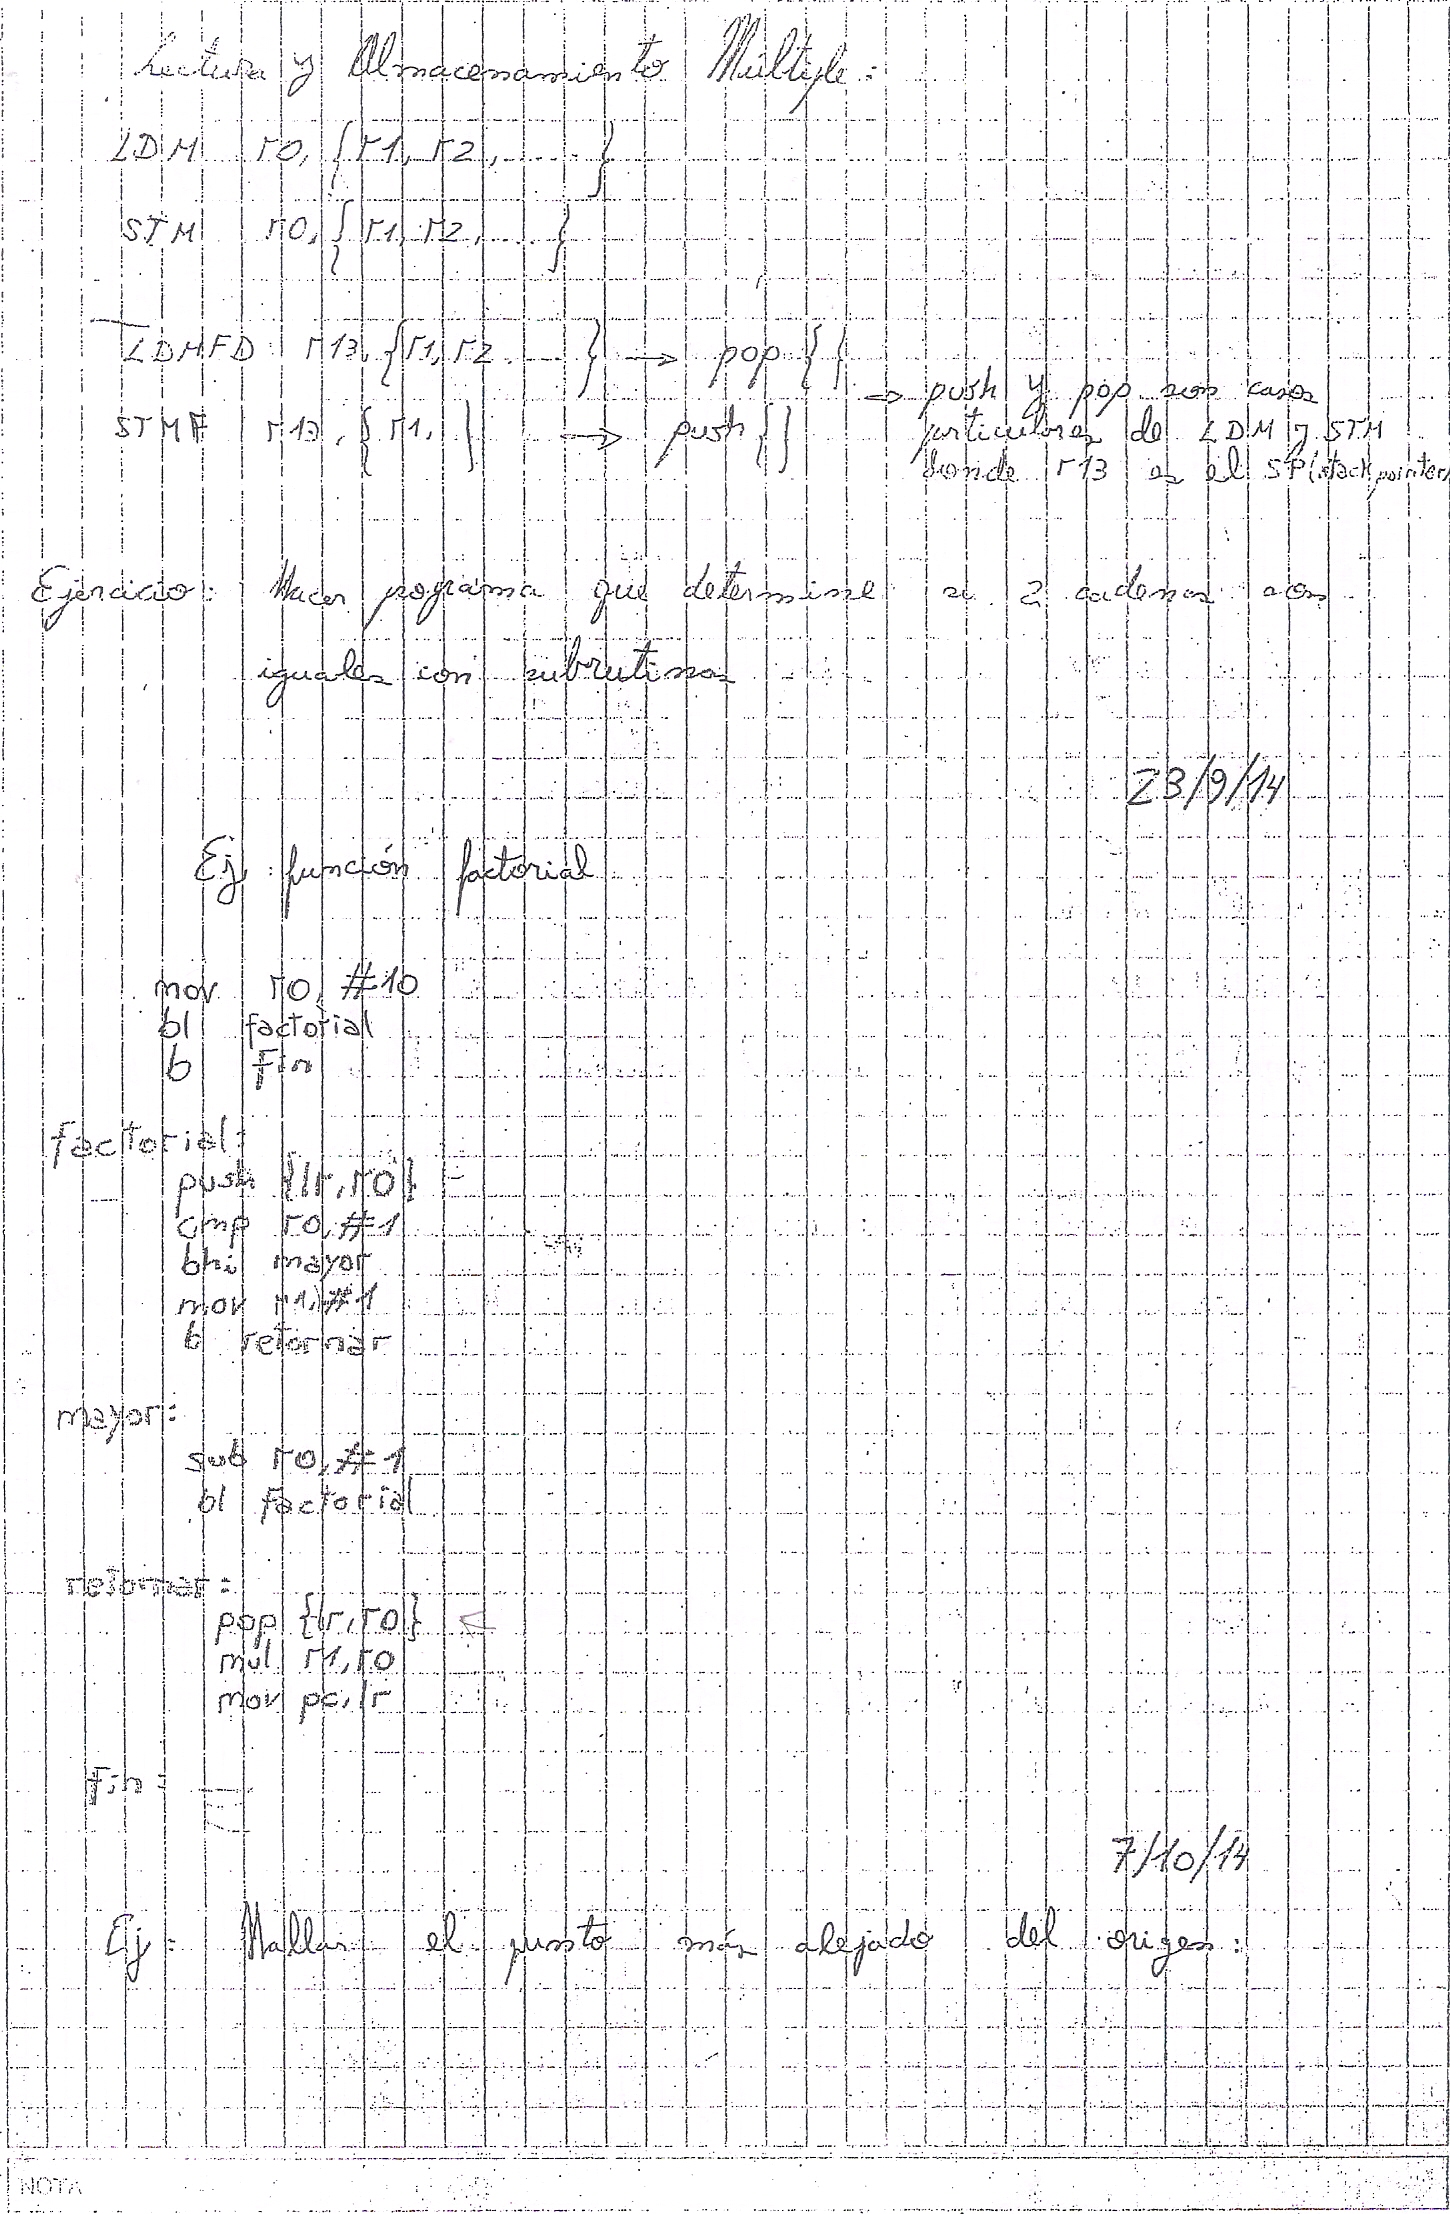 Lectura y Almacenamiento Múltiple:
LDM r0, {r1, r2, ..... }
STM r0, { r1, r2, .... }
LDMFD r13, {r1, r2 .... } → pop { }
⇒ push y pop son casos
STMF r13, { r1, } → push { } particulares de LDM y STM
donde r13 es el SP (stack pointer)
Ejercicio: Hacer programa que determine si 2 cadenas son
iguales con subrutinas
23/9/14
Ej: función factorial
mov r0, #10
bl factorial
b fin
factorial:
push {lr, r0}
cmp r0, #1
bhi mayor
mov r1, #1
b retornar
mayor:
sub r0, #1
bl factorial
retornar:
pop {lr, r0} ←
mul r1, r0
mov pc, lr
fin:
7/10/14
Ej: Hallar el punto más alejado del origen:
NOTA